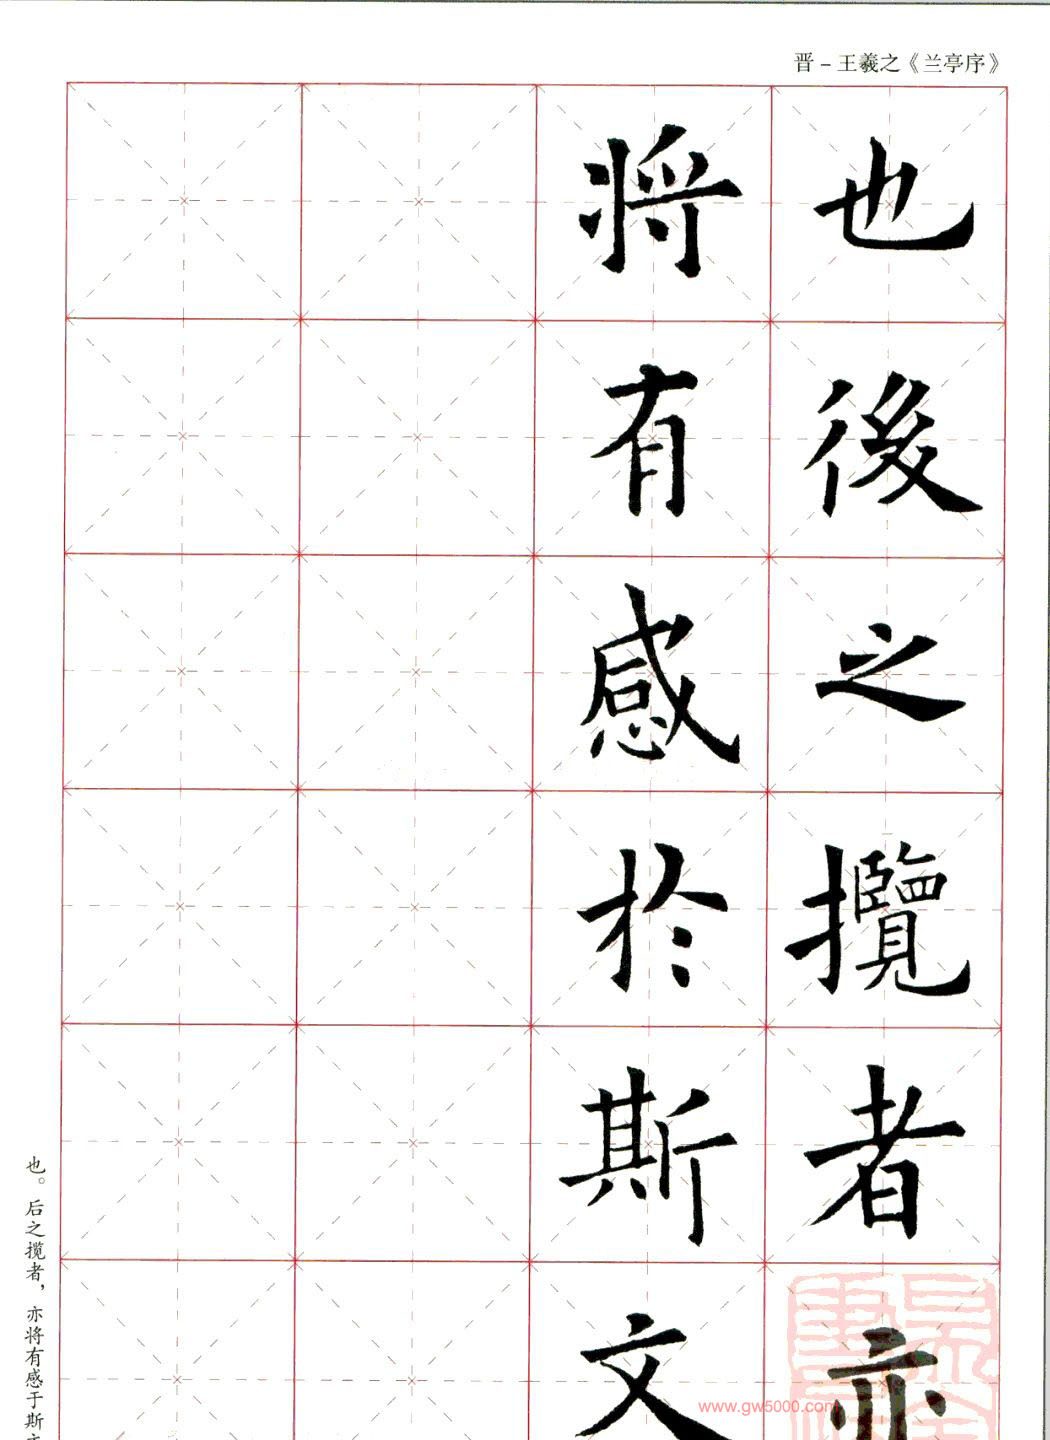 晋－王羲之《兰亭序》
也後之攬者亦
将有感於斯文
也。后之揽者，亦将有感于斯文
www.gw5000.com